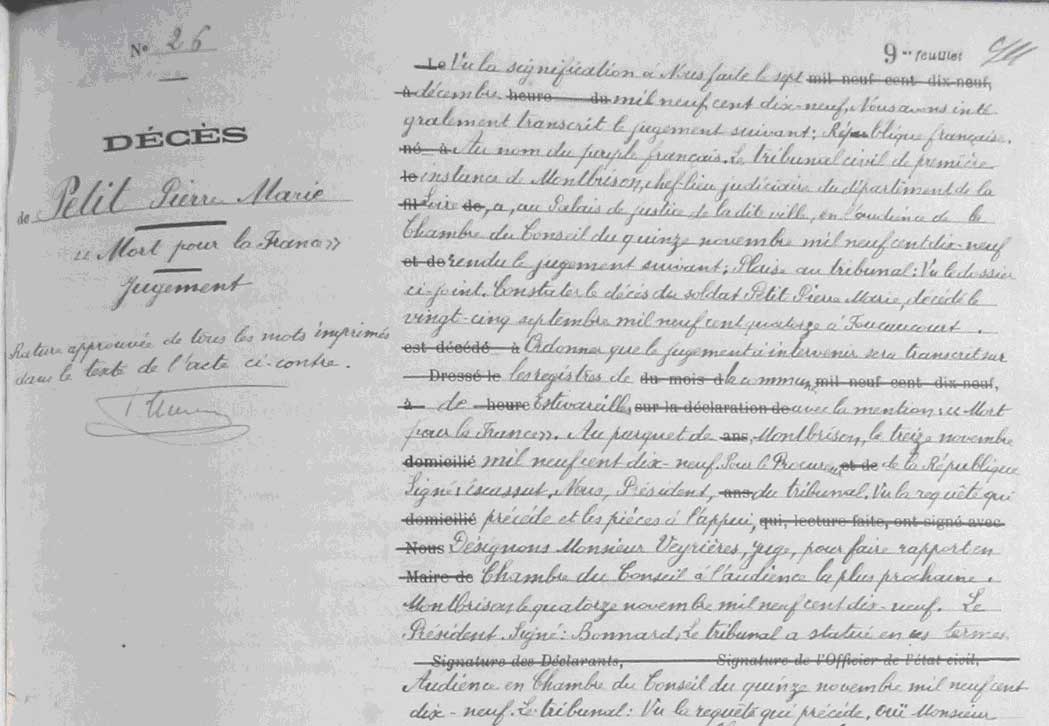 N° 26
DÉCÈS
de Petit Pierre Marie
« Mort pour la France »
Jugement
Rature approuvée de tous les mots imprimés
dans le texte de l'acte ci-contre.
9me feuillet
Le Vu la signification à Nous faite le sept mil neuf cent dix-neuf,
à décembre heure du mil neuf cent dix-neuf, Nous avons inté
gralement transcrit le jugement suivant: République française.
né à Au nom du peuple français. Le tribunal civil de première
le instance de Montbrison, chef-lieu judiciaire du département de la
fil Loire de, a, au Palais de justice de la dite ville, en l'audience de la
Chambre du Conseil du quinze novembre mil neuf cent dix-neuf
et de rendu le jugement suivant; Plaise au tribunal: Vu le dossier
ci-joint. Constater le décès du soldat Petit Pierre Marie, décédé le
vingt-cinq septembre mil neuf cent quatorze à Foucaucourt.
est décédé à Ordonner que le jugement à intervenir sera transcrit sur
Dressé le les registres de du mois d la commune mil neuf cent dix-neuf,
à de heure Estivareilles, sur la déclaration de avec la mention « Mort
pour la France ». Au parquet de ans, Montbrison, le treize novembre
domicilié mil neuf cent dix-neuf. Pour le Procureur et de de la République
Signé: Nous, Président, ans, du tribunal. Vu la requête qui
domicilié précède et les pièces à l'appui, qui, lecture faite, ont signé avec
Nous Désignons Monsieur Veyrières, juge, pour faire rapport en
Maire de Chambre du Conseil à l'audience la plus prochaine.
Montbrison, le quatorze novembre mil neuf cent dix-neuf. Le
Président. Signé: Bonnard. Le tribunal a statué en ces termes
Signature des Déclarants, Signature de l'Officier de l'état civil,
Audience en Chambre du Conseil du quinze novembre mil neuf cent
dix-neuf. Le tribunal: Vu la requête qui précède, ouï Monsieur